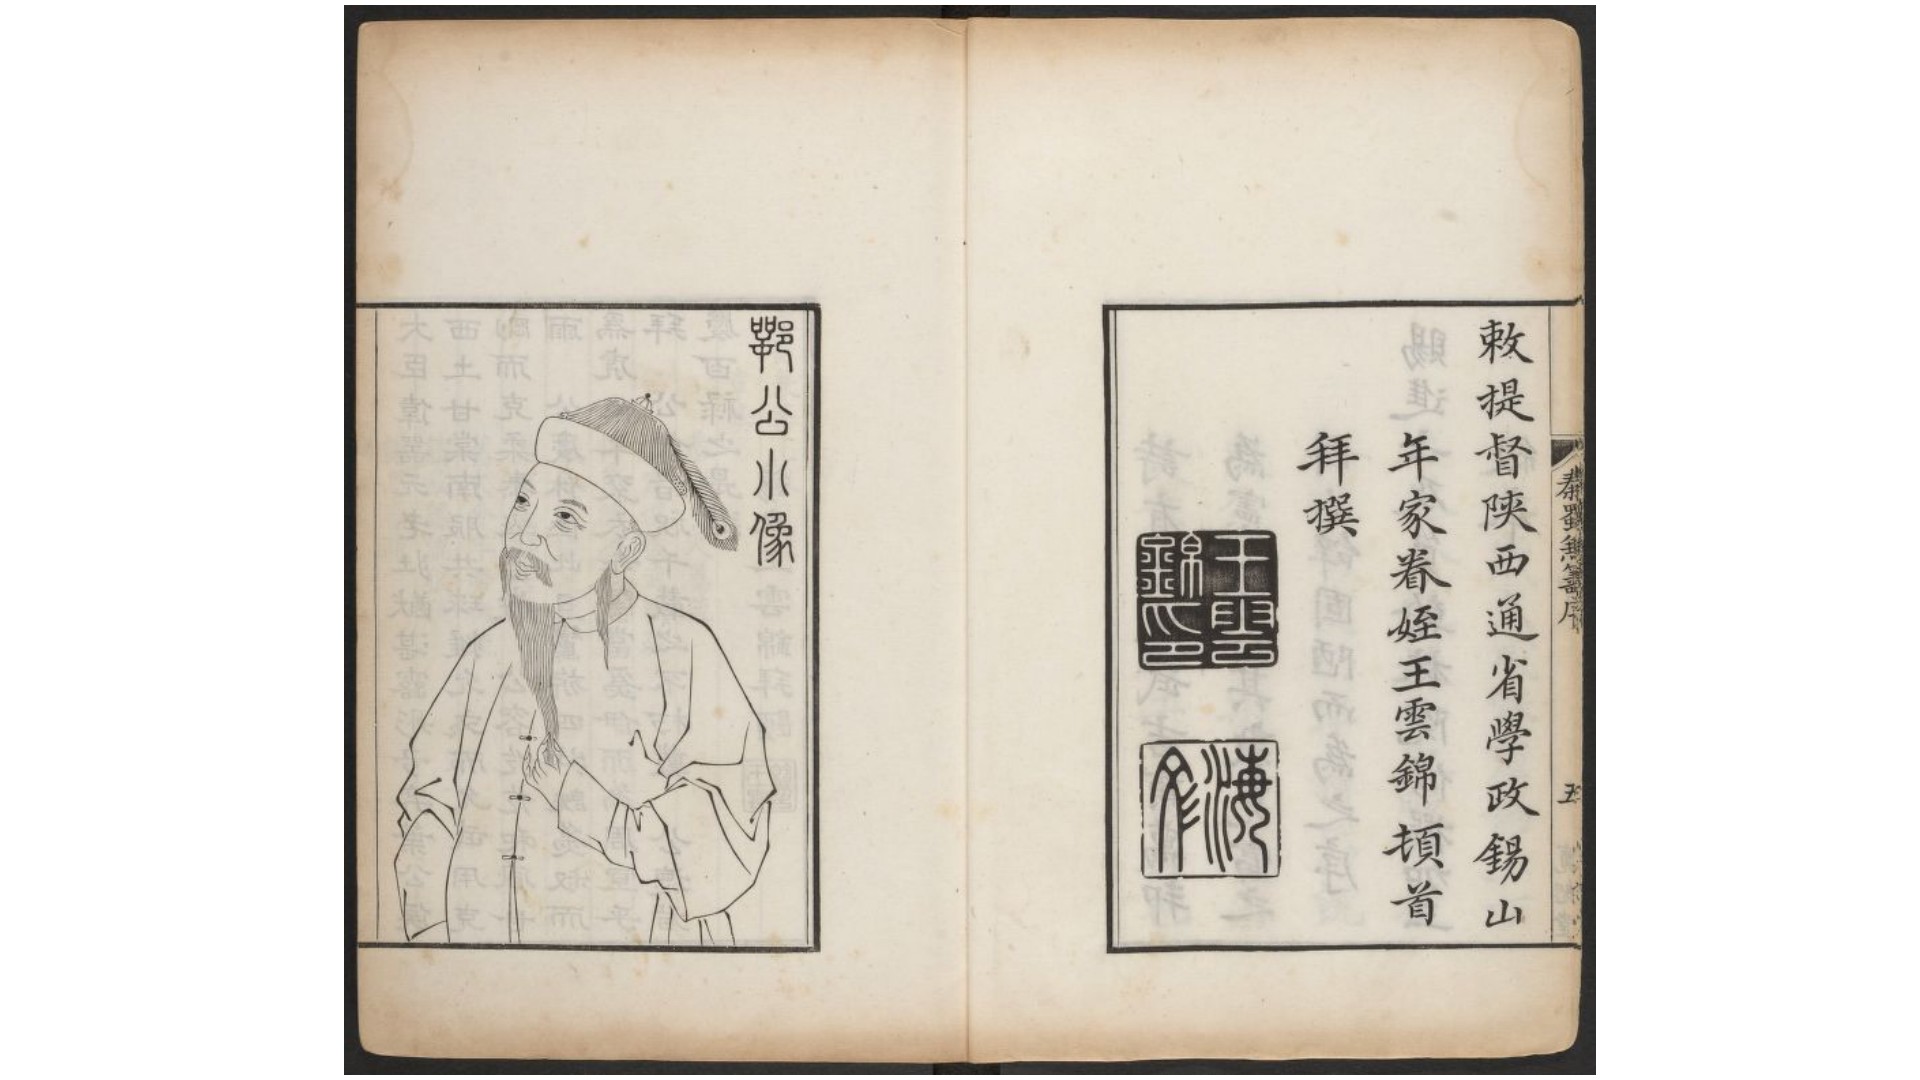 敕提督陝西通省學政錫山
年家眷姪王雲錦頓首
拜撰
王雲錦印
海文
五
鄂公小像